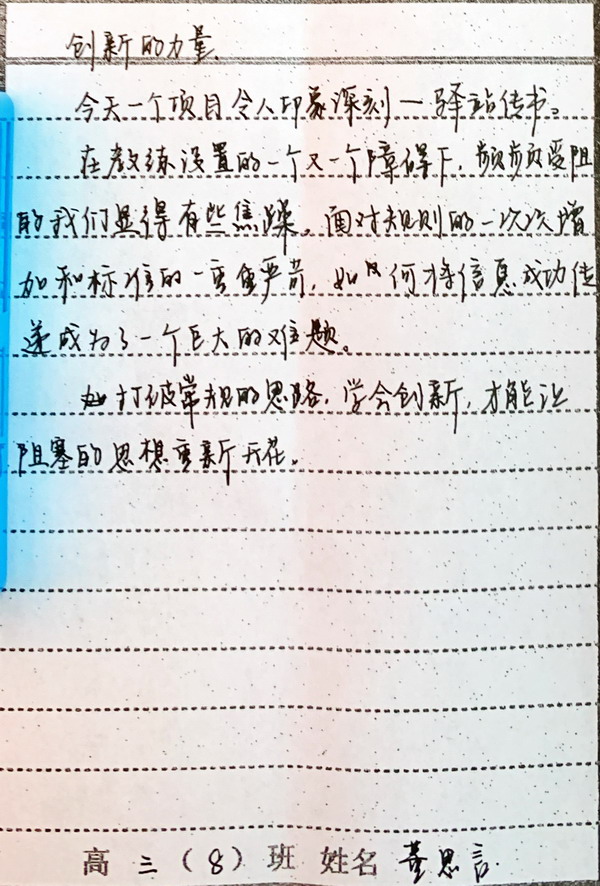 创新的力量
今天一个项目令人印象深刻一驿站传书。
在教练设置的一个又一个障碍下，频频受阻
的我们显得有些焦躁。面对规则的一次次增
加和标准的一重重严苛，如何将信息成功传
递成为了一个巨大的难题。
打破常规的思路，学会创新，才能让
阻塞的思想重新开花。
高三（8）班 姓名 董思言